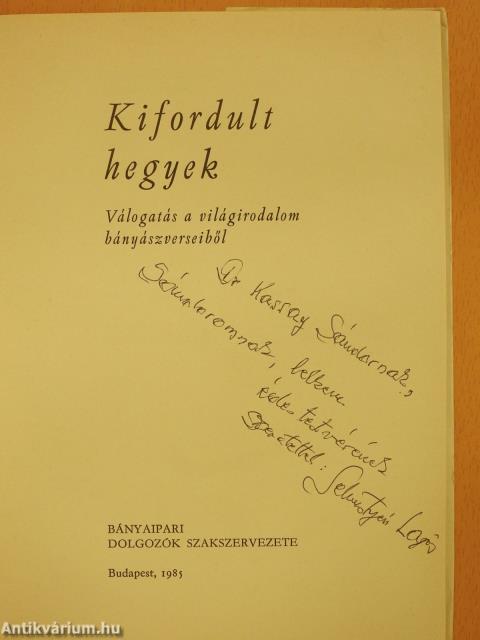 Kifordult
hegyek
Válogatás a világirodalom
bányászverseiből
Dr Kassay Sándornak,
Sándoromnak, lelkem
édes testvérének
szeretettel: Sebestyén Lajos
BÁNYAIPARI
DOLGOZÓK SZAKSZERVEZETE
Budapest, 1985
Antikvárium.hu